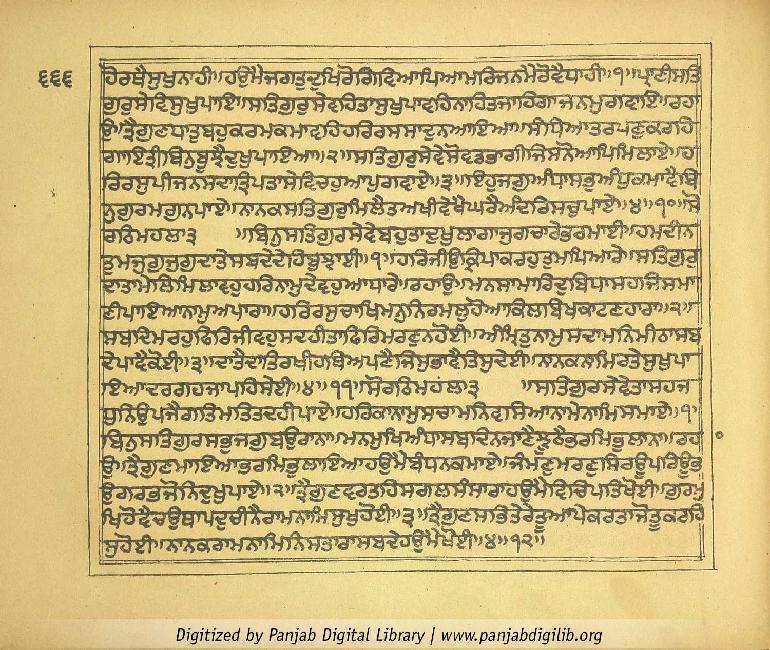 ੬੬੬
ਹੋਰਥੈਸੁਖੁਨਾਹੀ॥ਹਉਮੈਜਗਤੁਦੁਖਿਰੋਗਿਵਿਆਪਿਆਮਰਿਜਨਮੈਰੋਵੈਧਾਹੀ॥੧॥ਪ੍ਰਾਣੀਸਤਿ
ਗੁਰੁਸੇਵਿਸੁਖੁਪਾਏ॥ਸਤਿਗੁਰੁਸੇਵਹਿਤਾਸੁਖੁਪਾਵਹਿਨਾਹਿਤਜਾਹਿਗਾਜਨਮੁਗਵਾਇ॥ਰਹਾ
ਉ॥ਤ੍ਰੈਗੁਣਧਾਤੁਬਹੁਕਰਮਕਮਾਵਹਿਹਰਿਰਸਸਾਦੁਨਆਇਆ॥ਸੰਧਿਆਤਰਪਣੁਕਰਹਿ
ਗਾਇਤ੍ਰੀਬਿਨੁਬੂਝੈਦੁਖੁਪਾਇਆ॥੨॥ਸਤਿਗੁਰੁਸੇਵੇਸੋਵਡਭਾਗੀਜਿਸਨੋਆਪਿਮਿਲਾਏ॥ਹ
ਰਿਰਸੁਪੀਜਨਸਦਾਤ੍ਰਿਪਤਾਸੇਵਿਚਹੁਆਪੁਗਵਾਏ॥੩॥ਇਹੁਜਗੁਅੰਧਾਸਭੁਅੰਧੁਕਮਾਵੈਬਿ
ਨੁਗੁਰਮਗੁਨਪਾਏ॥ਨਾਨਕਸਤਿਗੁਰੁਮਿਲੈਤਅਖੀਵੇਖੈਘਰੈਅੰਦਰਿਸਚੁਪਾਏ॥੪॥੧੦॥ਸੋ
ਰਠਿਮਹਲਾ੩ ॥ਬਿਨੁਸਤਿਗੁਰਸੇਵੇਬਹੁਤਾਦੁਖੁਲਾਗਾਜੁਗਚਾਰੇਭਰਮਾਈ॥ਹਮਦੀਨ
ਤੁਮਜੁਗੁਜੁਗੁਦਾਤੇਸਬਦੇਦੇਹਿਬੁਝਾਈ॥੧॥ਹਰਿਜੀਉਕ੍ਰਿਪਾਕਰਹੁਤੁਮਪਿਆਰੇ॥ਸਤਿਗੁਰੁ
ਦਾਤਾਮੇਲਿਮਿਲਾਵਹੁਹਰਿਨਾਮੁਦੇਵਹੁਆਧਾਰੇ॥ਰਹਾਉ॥ਮਨਸਾਮਾਰਿਦੁਬਿਧਾਸਹਜਿਸਮਾ
ਣੀਪਾਇਆਨਾਮੁਅਪਾਰਾ॥ਹਰਿਰਸੁਚਾਖਿਮਨੁਨਿਰਮਲੁਹੋਆਕਿਲਬਿਖਕਾਟਣਹਾਰਾ॥੨॥
ਸਬਦਿਮਰਹੁਫਿਰਿਜੀਵਹੁਸਦਹੀਤਾਫਿਰਿਮਰਣੁਨਹੋਈ॥ਅੰਮ੍ਰਿਤੁਨਾਮੁਸਦਾਮਨਿਮੀਠਾਸਬ
ਦੇਪਾਵੈਕੋਈ॥੩॥ਦਾਤੈਦਾਤਿਰਖੀਹਥਿਅਪਣੈਜਿਸੁਭਾਵੈਤਿਸੁਦੇਈ॥ਨਾਨਕਨਾਮਿਰਤੇਸੁਖੁਪਾ
ਇਆਦਰਗਹਜਾਪਹਿਸੇਈ॥੪॥੧੧॥ਸੋਰਠਿਮਹਲਾ੩ ॥ਸਤਿਗੁਰਸੇਵੇਤਾਸਹਜ
ਧੁਨਿਉਪਜੈਗਤਿਮਤਿਤਦਹੀਪਾਏ॥ਹਰਿਕਾਨਾਮੁਸਚਾਮਨਿਵਸਿਆਨਾਮੇਨਾਮਿਸਮਾਏ॥੧॥
ਬਿਨੁਸਤਿਗੁਰਸਭੁਜਗੁਬਉਰਾਨਾ॥ਮਨਮੁਖਿਅੰਧਾਸਬਦਿਨਜਾਣੈਝੂਠੈਭਰਮਿਭੁਲਾਨਾ॥ਰਹਾ
ਉ॥ਤ੍ਰੈਗੁਣਮਾਇਆਭਰਮਿਭੁਲਾਇਆਹਉਮੈਬੰਧਨਕਮਾਏ॥ਜੰਮਣੁਮਰਣੁਸਿਰਊਪਰਿਊਭ
ਉਗਰਭਜੋਨਿਦੁਖੁਪਾਏ॥੨॥ਤ੍ਰੈਗੁਣਵਰਤਹਿਸਗਲਸੰਸਾਰਾਹਉਮੈਵਿਚਿਪਤਿਖੋਈ॥ਗੁਰਮੁ
ਖਿਹੋਵੈਚਉਥਾਪਦੁਚੀਨੈਰਾਮਨਾਮਿਸੁਖੁਹੋਈ॥੩॥ਤ੍ਰੈਗੁਣਸਭਿਤੇਰੇਤੂਆਪੇਕਰਤਾਜੋਤੂਕਰਹਿ
ਸੁਹੋਈ॥ਨਾਨਕਰਾਮਨਾਮਿਨਿਸਤਾਰਾਸਬਦੇਹਉਮੈਖੋਈ॥੪॥੧੨॥
Digitized by Panjab Digital Library | www.panjabdigilib.org